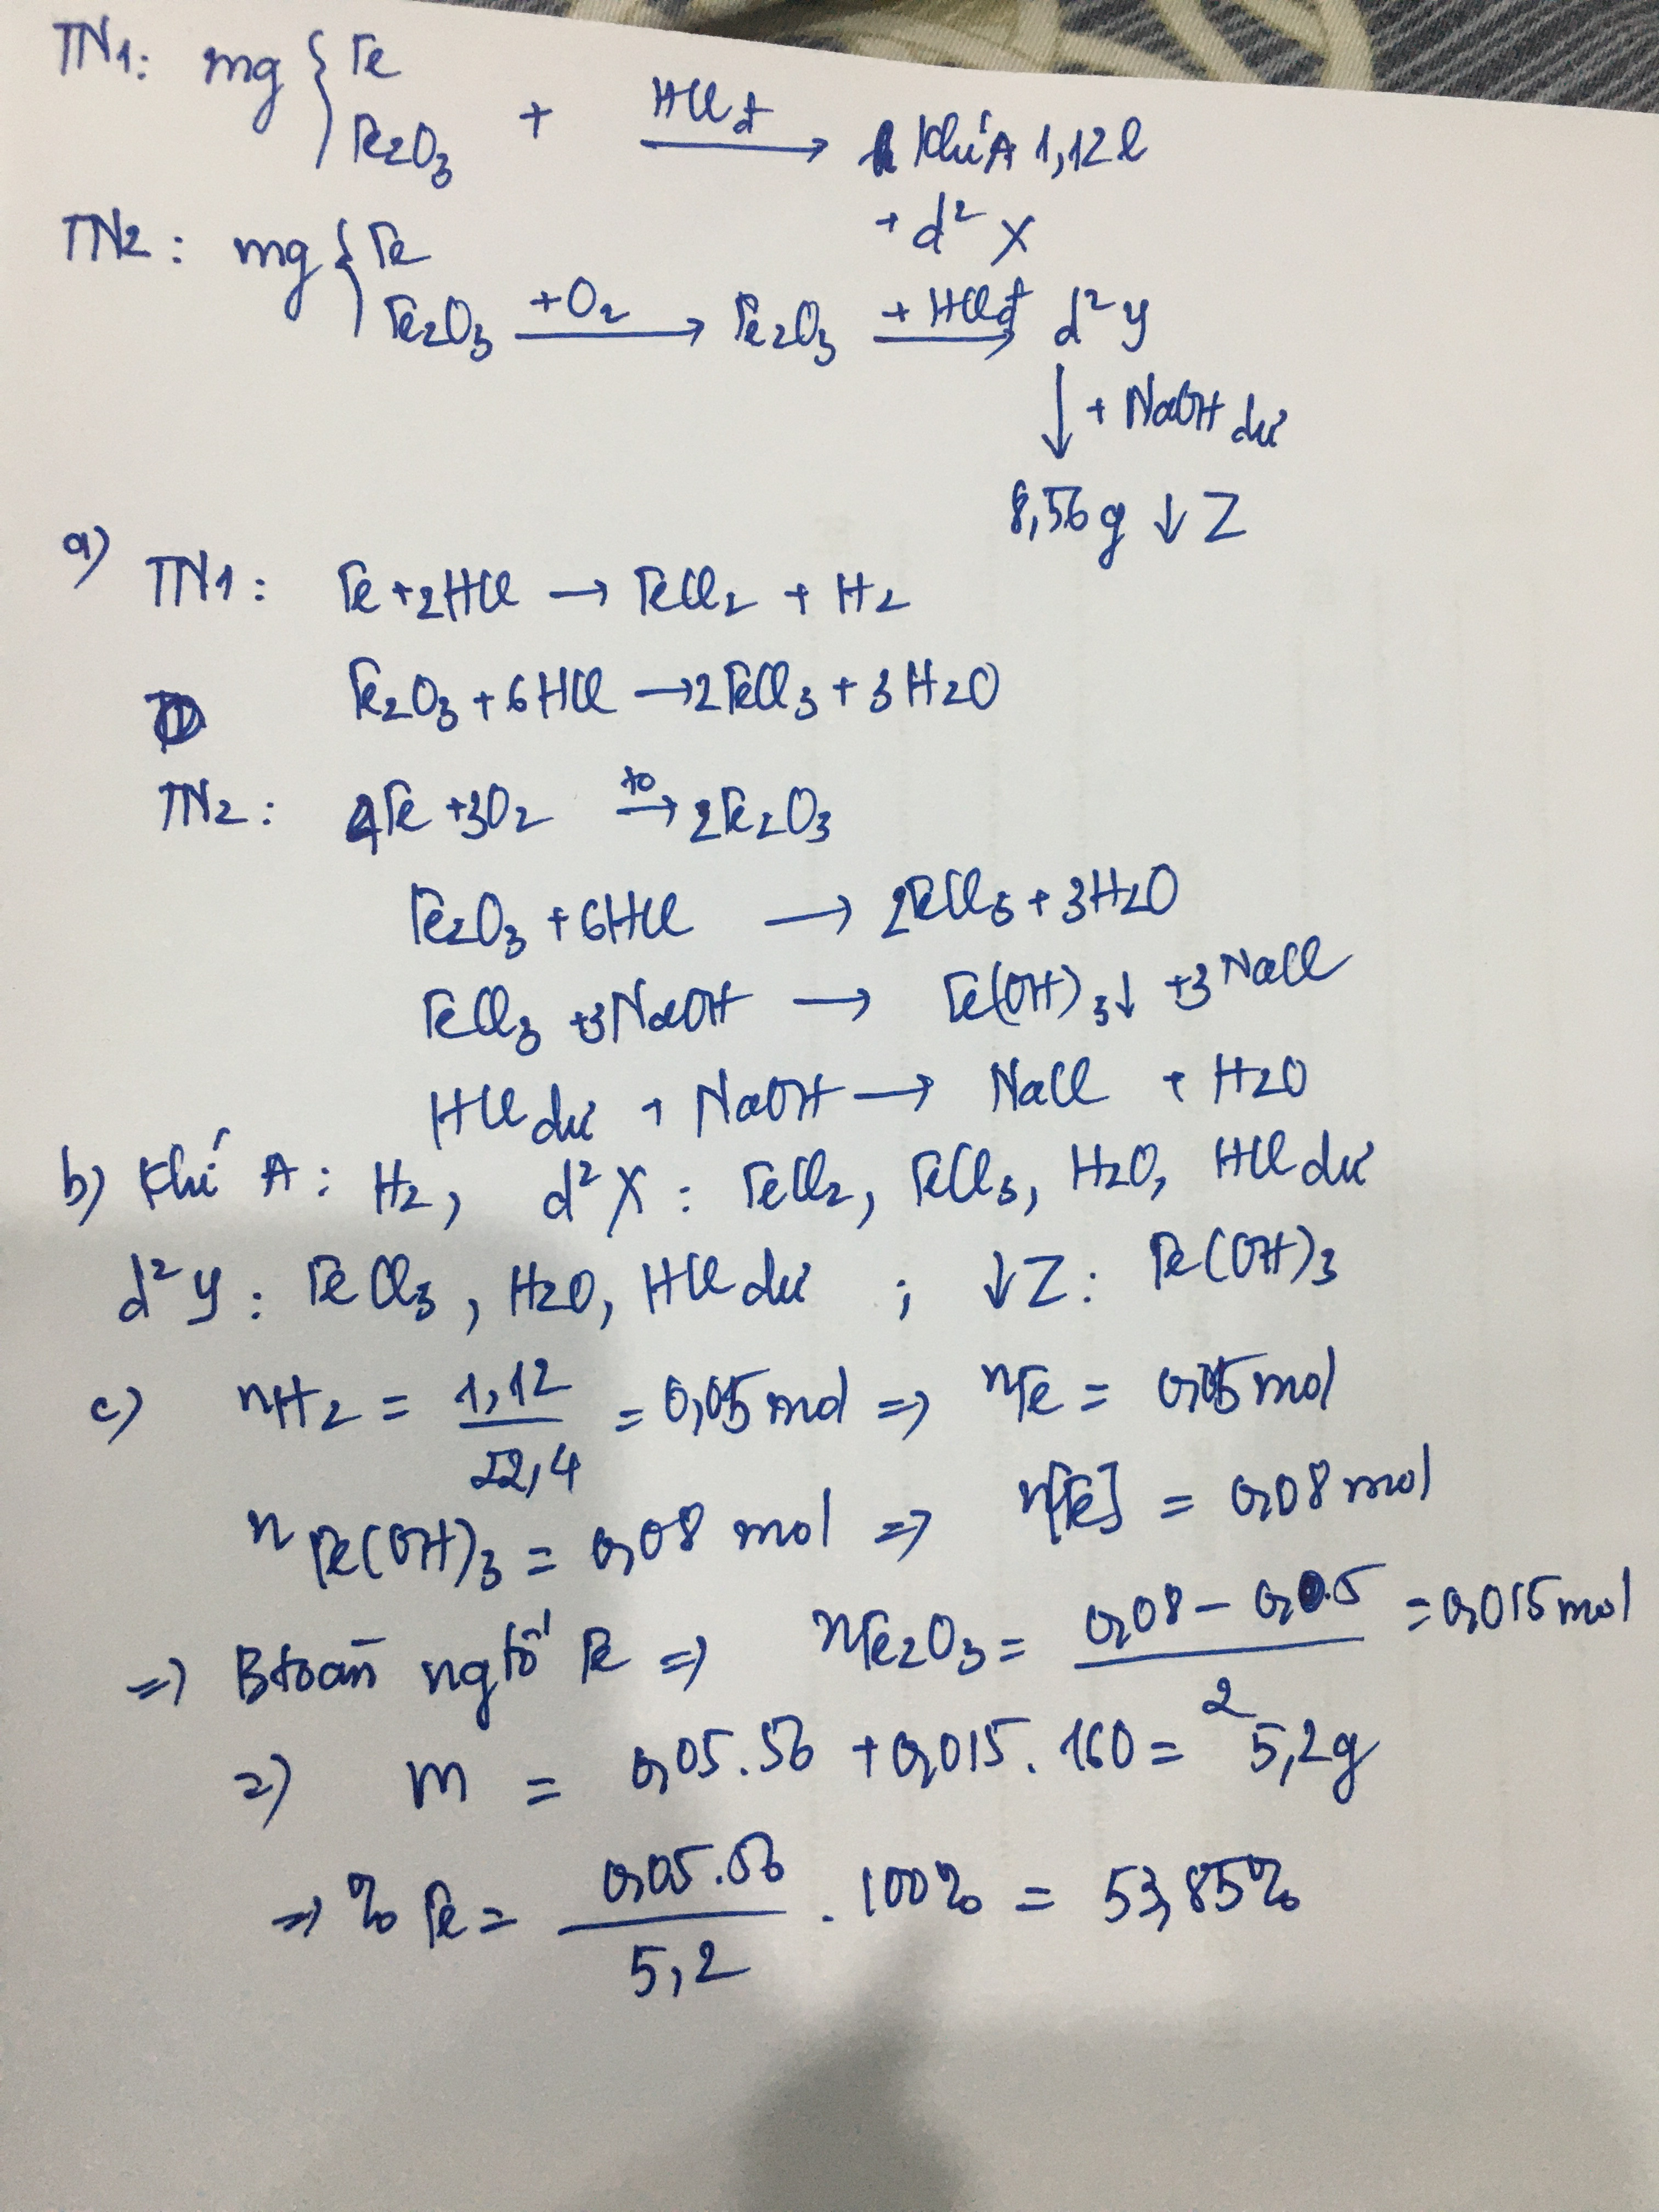 TN1: mg { Fe
Fe2O3 + HCl d → Khí A 1,12l
+ d² X
TN2: mg { Fe
Fe2O3 +O2 → Fe2O3 + HCl d → d² Y
↓ + NaOH dư
8,56g ↓ Z
a) TN1: Fe + 2HCl → FeCl2 + H2
Fe2O3 + 6HCl → 2FeCl3 + 3H2O
TN2: 4Fe + 3O2 to → 2Fe2O3
Fe2O3 + 6HCl → 2FeCl3 + 3H2O
FeCl3 + 3NaOH → Fe(OH)3↓ + 3NaCl
HCl dư + NaOH → NaCl + H2O
b) Khí A: H2, d² X: FeCl2, FeCl3, H2O, HCl dư
d² Y: FeCl3, H2O, HCl dư ; ↓Z: Fe(OH)3
c) nH2 = 1,12 / 22,4 = 0,05 mol => nFe = 0,05 mol
n Fe(OH)3 = 0,08 mol => n[Fe] = 0,08 mol
=> Btoàn ngtố Fe => nFe2O3 = 0,08 - 0,05 / 2 = 0,015 mol
=> m = 0,05.56 + 0,015.160 = 5,2g
=> % Fe = 0,05.56 / 5,2 . 100% = 53,85%